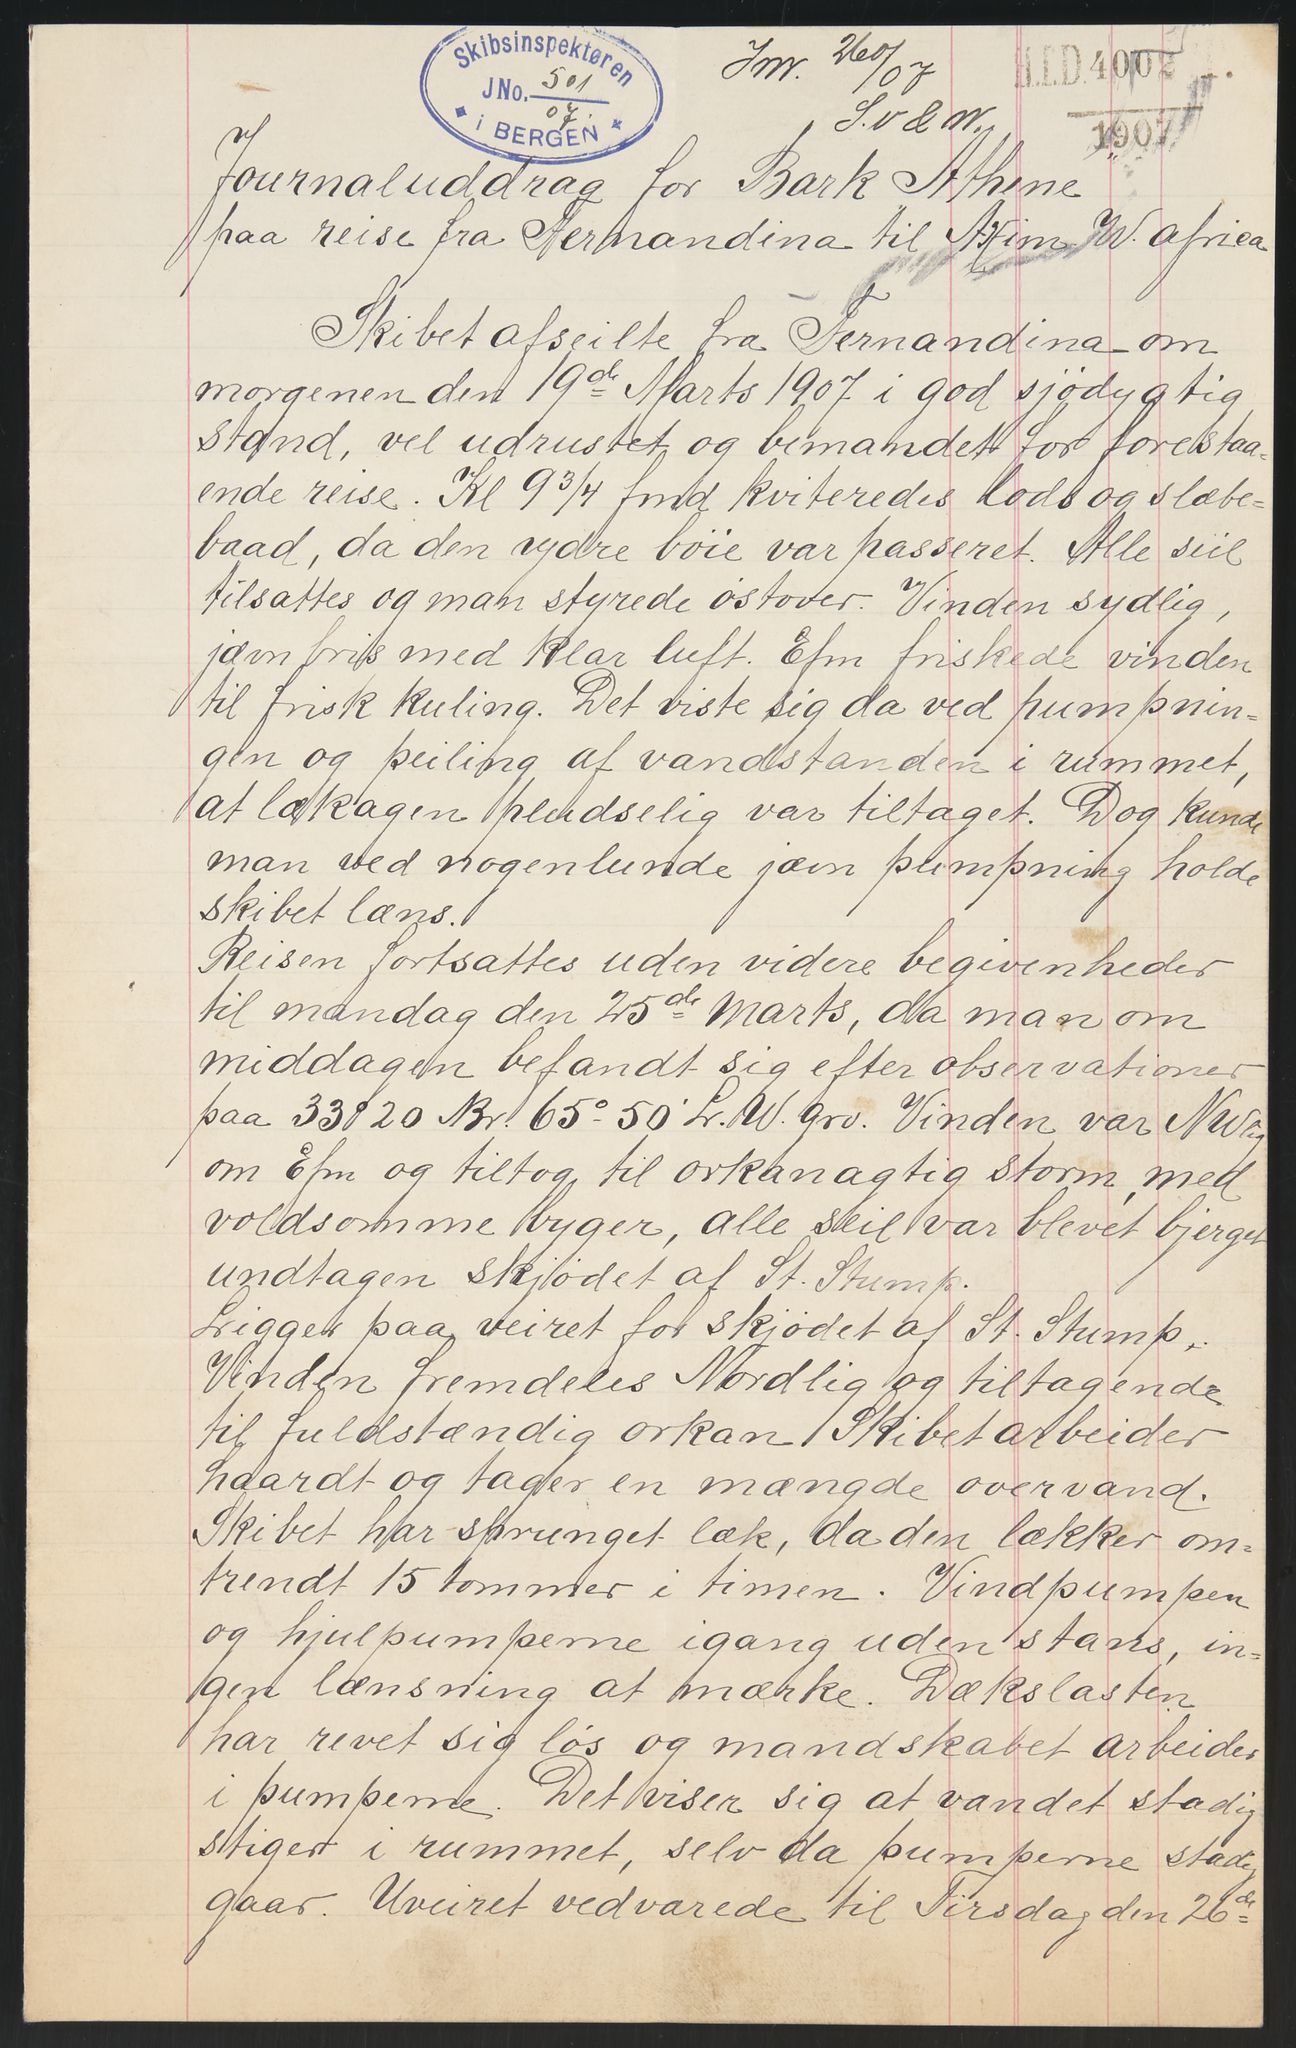 Skibsinspektøren
J No. 501
07.
i BERGEN
Jnr. 260/07
S. v & W.
H.I.D. 4002
1907
Journaluddrag for Bark Athene
paa reise fra Fernandina til Axim W. africa
Skibet afseilte fra Fernandina om
morgenen den 19de Marts 1907 i god sjödygtig
stand, vel udrustet og bemandet for forestaa=
ende reise. Kl 9 3/4 fmd kviteredes lods og slæbe=
baad, da den ydre böie var passeret. Alle seil
tilsattes og man styrede östover. Vinden sydlig,
jævn bris med klar luft. Efm friskede vinden
til frisk kuling. Det viste sig da ved pumpnin=
gen og peiling af vandstanden i rummet,
at lækagen pludselig var tiltaget. Dog kunde
man ved nogenlunde jævn pumpning holde
skibet læns.
Reisen fortsattes uden videre begivenheder
til mandag den 25de Marts, da man om
middagen befandt sig efter observationer
paa 33° 20 N Br. 65° 50' L. W. Grv. Vinden var NWlig
om Efm og tiltog til orkanagtig storm, med
voldsomme byger, alle seil var blevet bjerget
undtagen skjödet af St. Stump.
Ligger paa veiret for skjödet af St. Stump.
Vinden fremdeles Nordlig og tiltagende
til fuldstændig orkan. Skibet arbeider
haardt og tager en mængde overvand.
Skibet har sprunget læk, da den lækker om=
trendt 15 tommer i timen. Vindpumpen
og hjulpumperne igang uden stans, in=
gen lænsning at mærke. Dækslasten
har revet sig lös og mandskabet arbeider
i pumperne. Det viser sig at vandet stadig
stiger i rummet, selv da pumperne stadig
gaar. Uveiret vedvarede til Tirsdag den 26de